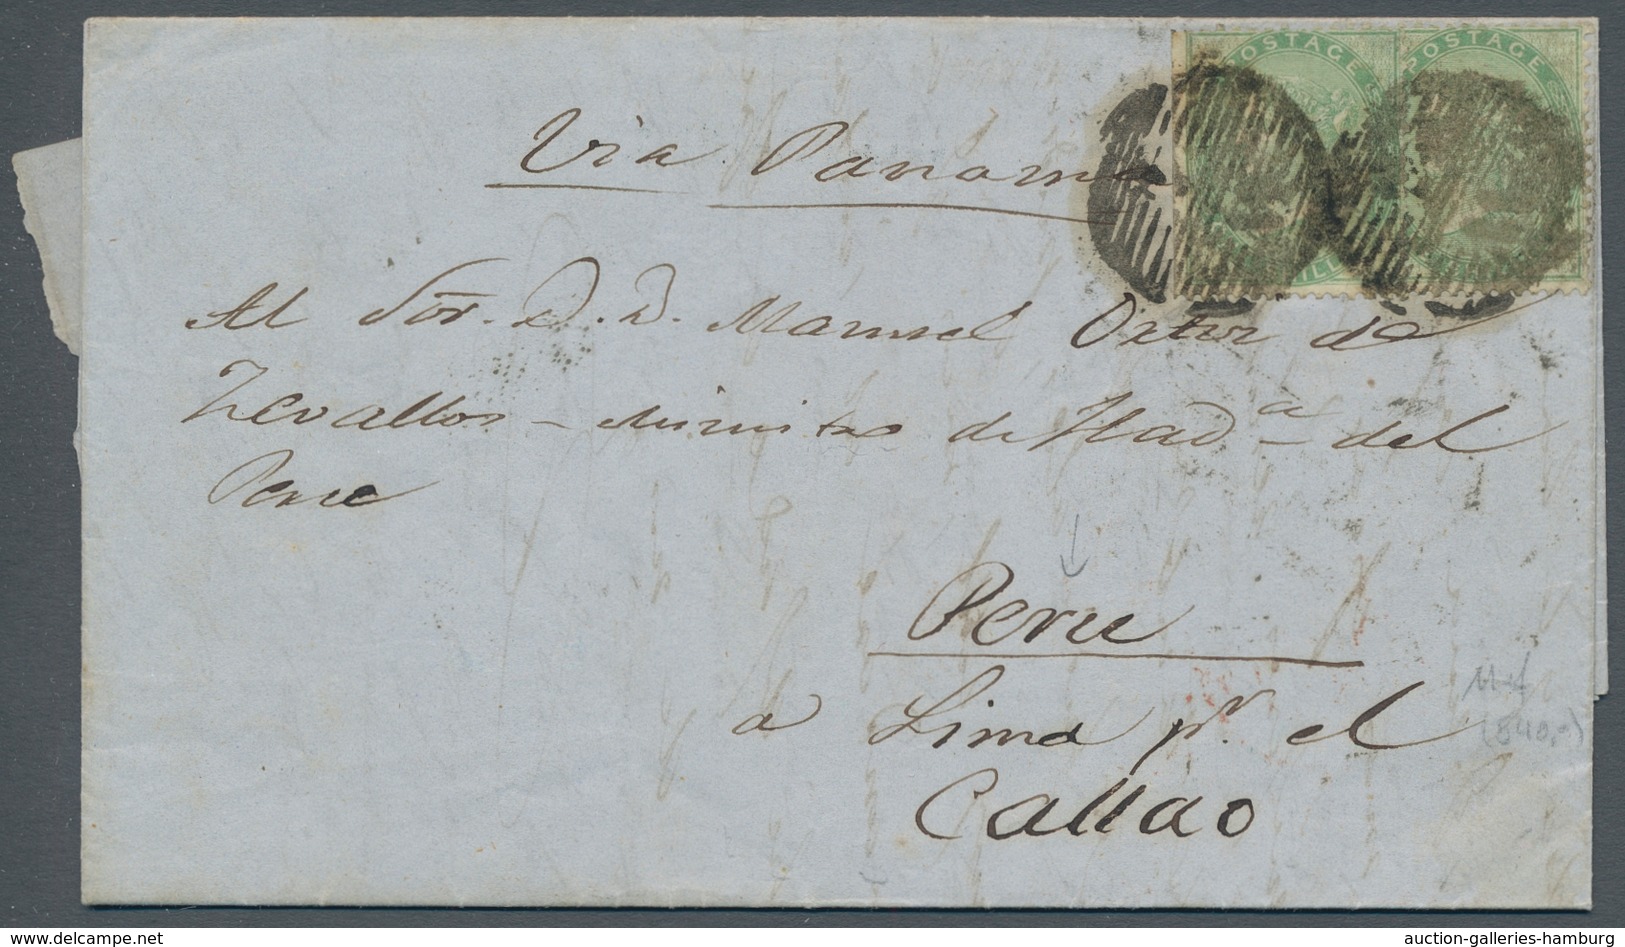 POSTAGE POSTAGE
Via Panama
Al Sor. D. D. Manuel Ortiz de
Zevallos - Ministro de Hada. del
Peru
Peru
a Lima pr. el
Callao
(840.-)
auction-galleries-hamburg